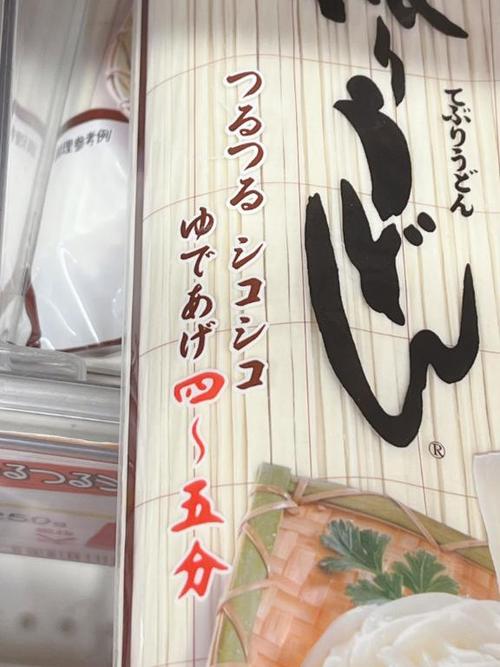 りうどん
®
てぶりうどん
つるつる シコシコ
ゆであげ四〜五分
理参考例
るつる